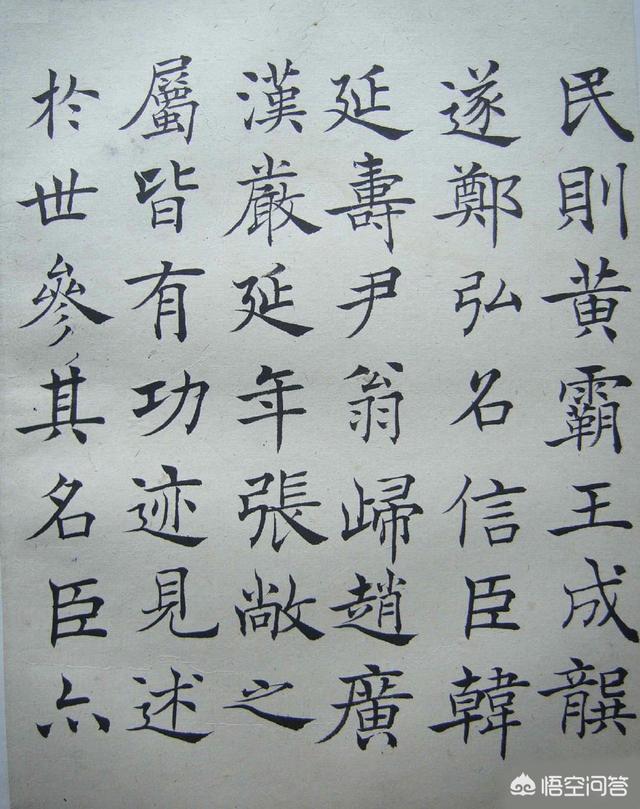 民則黄霸王成龔
遂鄭弘名信臣韓
延壽尹翁歸趙廣
漢嚴延年張敞之
屬皆有功迹見述
於世參其名臣亦
悟空问答